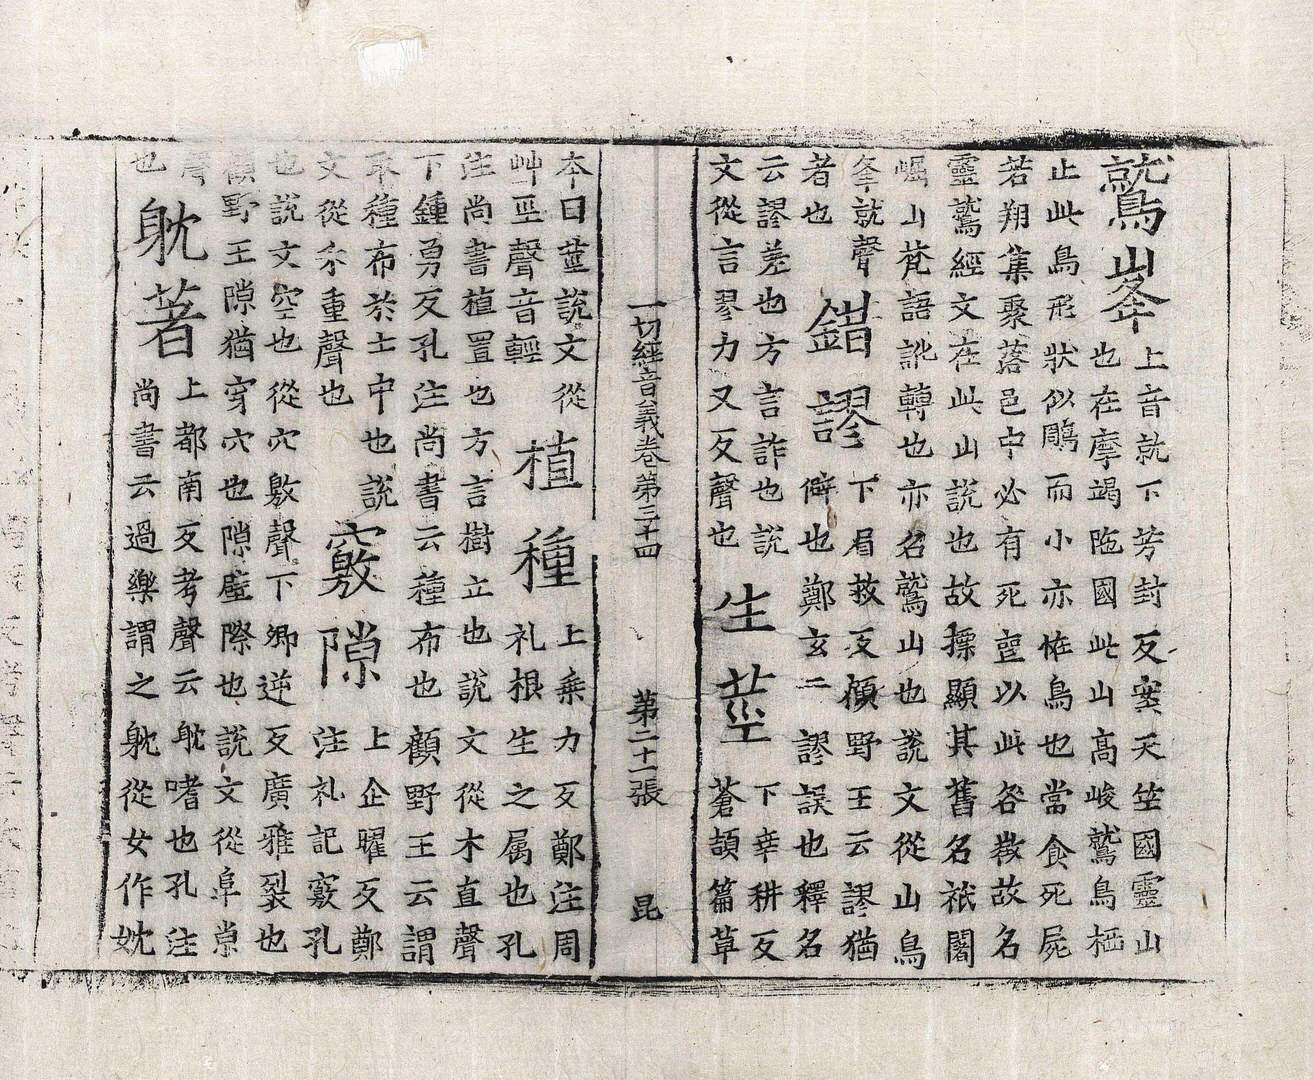 鷲峯
上音就下芳封反案天竺國靈山
也在摩竭陁國此山高峻鷲鳥栖
止此鳥形狀似鵰而小亦恠鳥也當食死屍
若翔集聚落邑中必有死喪以此咎徵故名
靈鷲經文在此山說也故摽顯其舊名祇闍
崛山梵語訛轉也亦名鷲山也說文從山鳥
夆就聲
者也
錯謬
下眉救反顧野王云謬猶
僻也鄭玄云謬誤也釋名
云謬差也方言詐也說
文從言翏力又反聲也
生莖
下幸耕反
蒼頡篇草
一切經音義卷第三十四 第二十一張 昆
本曰莖說文從
艸巠聲音輕
植種
上乗力反鄭注周
礼根生之属也孔
注尚書植置也方言樹立也說文從木直聲
下鍾勇反孔注尚書云種布也顧野王云謂
取種布於土中也說
文從禾重聲也
竅隙
上企曜反鄭
注礼記竅孔
也說文空也從穴敫聲下卿逆反廣雅裂也
顧野王隙猶穿穴也隙壁際也說文從阜𡭴
聲
也
躭著
上都南反考聲云躭嗜也孔注
尚書云過樂謂之躭從女作妉